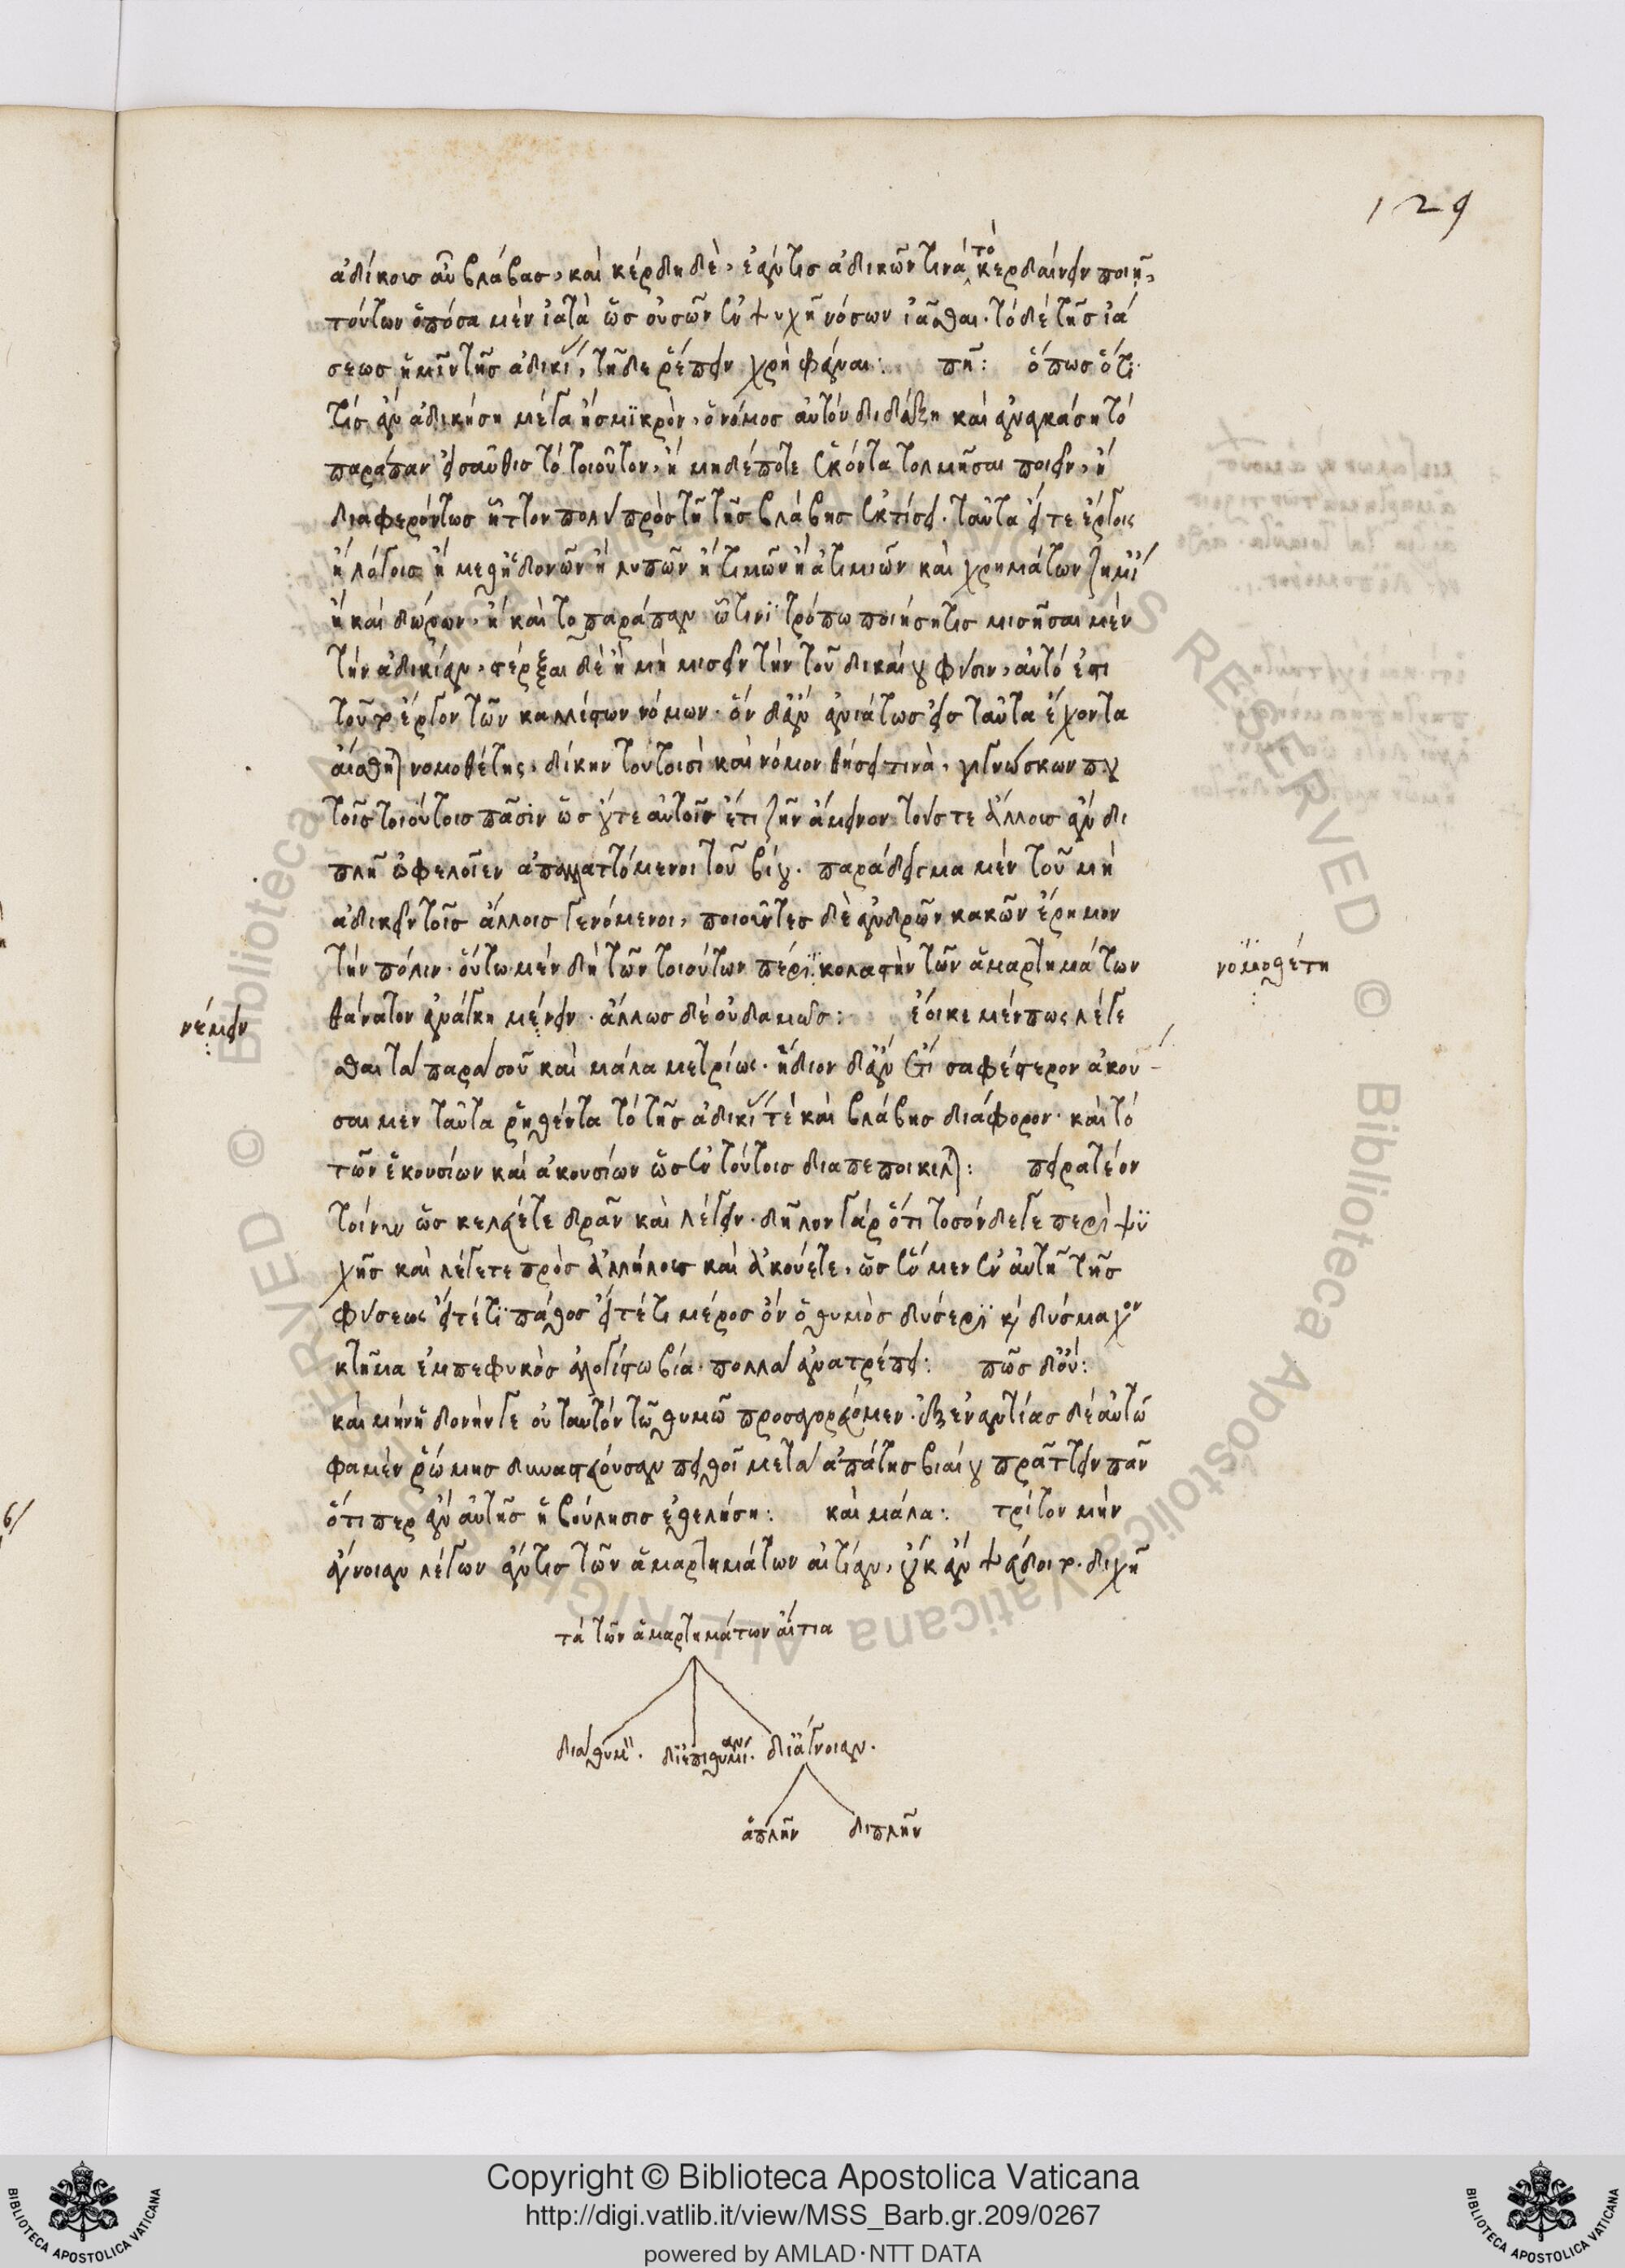 129
ἀδίκους αὖ βλάβας, καὶ κέρδη δὲ, ἐάν τις ἀδικῶν τινὰ τὸ κερδαίνειν ποιῇ,
τούτων ὁπόσα μὲν ἰατὰ ὡς οὐσῶν ἐν ψυχῇ νόσων ἰᾶσθαι· τὸ δὲ τῆς ἰά
σεως ἡμῖν τῆς ἀδικίας, τῇδε ῥέπειν χρὴ φάναι: πῇ: ὅπως ὅτι
τίς ἂν ἀδικήσῃ μέγα ἢ σμικρὸν, ὁ νόμος αὐτὸν διδάξῃ καὶ ἀναγκάσῃ τὸ
παράπαν εἰσαῦθις τὸ τοιοῦτον, ἢ μηδέποτε ἑκόντα τολμῆσαι ποιεῖν, ἢ
διαφερόντως ἧττον πολὺ πρὸς τῇ τῆς βλάβης ἐκτίσει. ταῦτα εἴτε ἔργοις
ἢ λόγοις ἢ μεθ' ἡδονῶν ἢ λυπῶν ἢ τιμῶν ἢ ἀτιμιῶν καὶ χρημάτων ζημίας
ἢ καὶ δώρων, ἢ καὶ τὸ παράπαν ᾧτινι τρόπῳ ποιήσῃ τις μισῆσαι μὲν
τὴν ἀδικίαν, στέρξαι δὲ ἢ μὴ μισεῖν τὴν τοῦ δικαίου φύσιν, αὐτό ἐστι
τοῦτ' ἔργον τῶν καλλίστων νόμων. ὃν δ' ἂν ἀνιάτως εἰς ταῦτα ἔχοντα
αἴσθηται νομοθέτης, δίκην τούτοισι καὶ νόμον θήσει τινὰ, γιγνώσκων που
τοῖς τοιούτοις πᾶσιν ὡς οὔτε αὐτοῖς ἔτι ζῆν ἄμεινον τούς τε ἄλλους ἂν δι
πλῇ ὠφελοῖεν ἀπαλλαττόμενοι τοῦ βίου. παράδειγμα μὲν τοῦ μὴ
ἀδικεῖν τοῖς ἄλλοις γενόμενοι, ποιοῦντες δὲ ἀνδρῶν κακῶν ἔρημον
τὴν πόλιν. οὕτω μὲν δὴ τῶν τοιούτων πέρι κολαστὴν τῶν ἁμαρτημάτων
νομοθέτῃ
νέμειν
θάνατον ἀνάγκη μένειν. ἄλλως δὲ οὐδαμῶς: ἔοικε μέν πως λέγε
σθαι τὰ παρὰ σοῦ καὶ μάλα μετρίως. ἥδιον δ' ἂν ἔτι σαφέστερον ἀκού
σαιμεν ταῦτα ῥηθέντα τὸ τῆς ἀδικίας τὲ καὶ βλάβης διάφορον. καὶ τὸ
τῶν ἑκουσίων καὶ ἀκουσίων ὡς ἐν τούτοις διαπεποίκιλται: πειρατέον
τοίνυν ὡς κελεύετε δρᾶν καὶ λέγειν. δῆλον γὰρ ὅτι τοσόνδε γε περὶ ψυ
χῆς καὶ λέγετε πρὸς ἀλλήλους καὶ ἀκούετε, ὡς ἓν μὲν ἐν αὐτῇ τῆς
φύσεως εἴτέ τι πάθος εἴτέ τι μέρος ὂν ὁ θυμὸς δύσερι καὶ δύσμαχον
κτῆμα ἐμπεφυκὸς ἀλογίστῳ βίᾳ. πολλὰ ἀνατρέπει: πῶς δ' οὔ:
καὶ μὴν ἡδονήν γε οὐ ταυτὸν τῷ θυμῷ προσαγορεύομεν. ἐξ ἐναντίας δὲ αὐτῷ
φαμὲν ῥώμης δυναστεύουσαν πειθοῖ μετὰ ἀπάτης βιαίου πράττειν πᾶν
ὅτι περ ἂν αὐτῆς ἡ βούλησις ἐθελήσῃ: καὶ μάλα: τρίτον μὴν
ἄγνοιαν λέγων ἄν τις τῶν ἁμαρτημάτων αἰτίαν, οὐκ ἂν ψεύδοιτο. διχῇ
τὰ τῶν ἁμαρτημάτων αἴτια
διὰ θυμόν. δι' ἐπιθυμίαν. δι' ἄγνοιαν.
ἁπλῆν διπλῆν
Copyright © Biblioteca Apostolica Vaticana
http://digi.vatlib.it/view/MSS_Barb.gr.209/0267
powered by AMLAD·NTT DATA
BIBLIOTECA APOSTOLICA VATICANA
BIBLIOTECA APOSTOLICA VATICANA